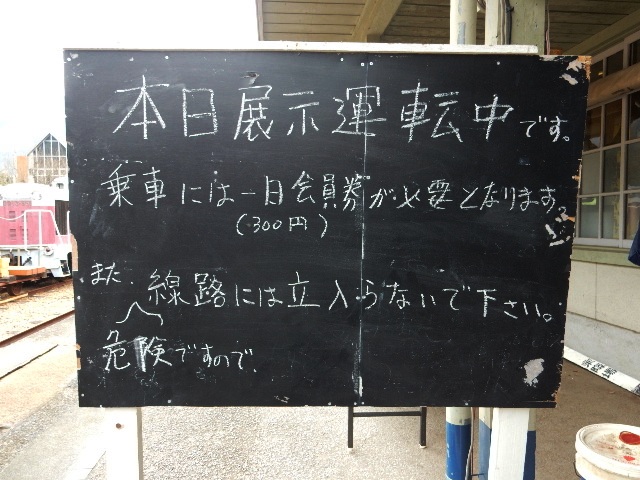 本日展示運転中です。
乗車には一日会員券が必要となります。
(300円)
また、線路には立入らないで下さい。
危険ですので、